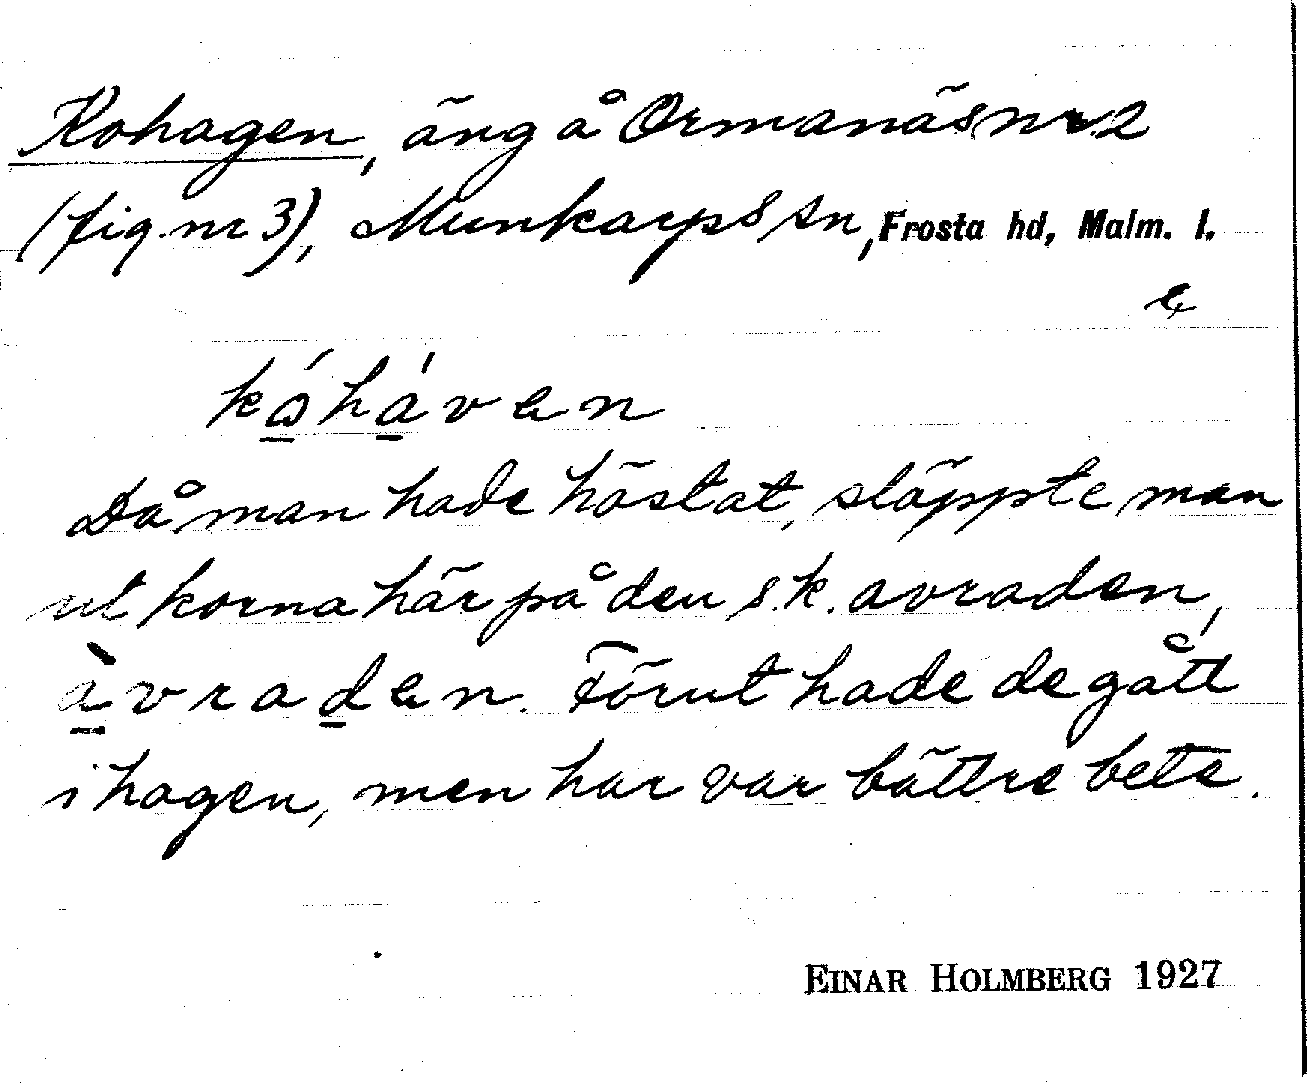 Kohagen, äng å Ormanäs nr 2
(fig. nr 3), Munkarps sn, Frosta hd, Malm. l.
kóháven
Då man hade höstat, släppte man
ut korna här på den s.k. avraden,
àvraden. Förut hade de gått
i hagen, men här var bättre bete.
EINAR HOLMBERG 1927